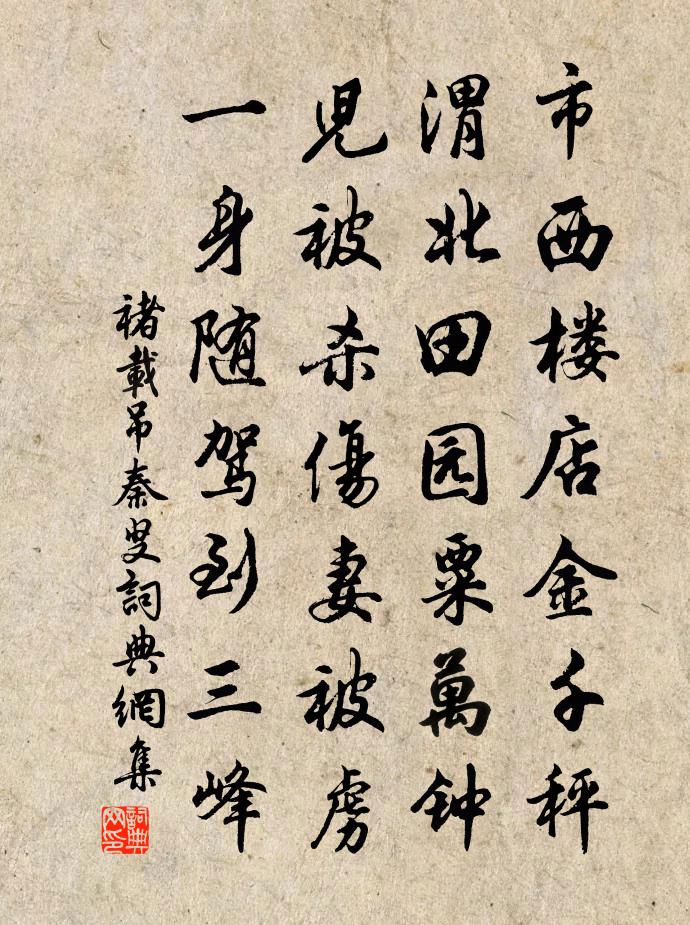 市西楼店金千秤
渭北田园粟萬钟
児被杀傷妻被虏
一身随驾到三峰
褚載吊秦叟詞典網集
詞典网印